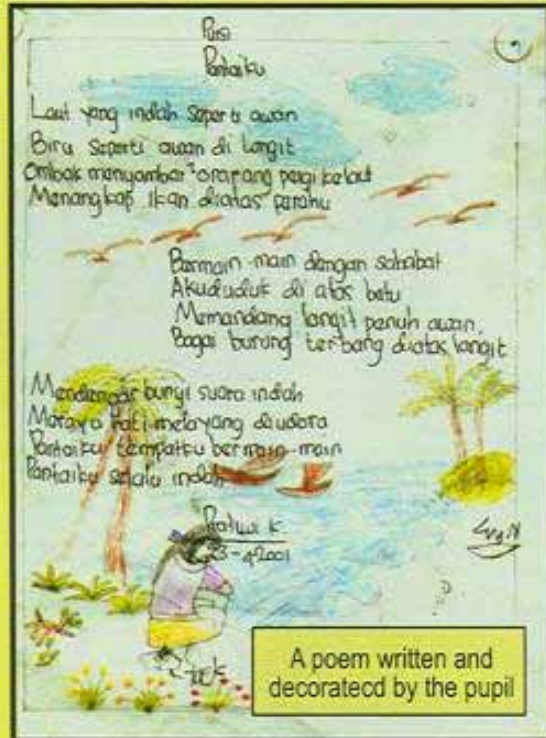 Puisi
Pantaiku
Laut yang indah seperti awan
Biru seperti awan di langit
Ombak menyambar orang pergi kelaut
Menangkap ikan diatas perahu
Bermain main dengan sahabat
Aku duduk di atas batu
Memandang langit penuh awan.
Bagai burung terbang diatas langit
Mendengar bunyi suara indah
hati melayang diudara
Pantaiku tempatku bermain-main
Pantaiku selalu indah
K.
A poem written and
decoratecd by the pupil